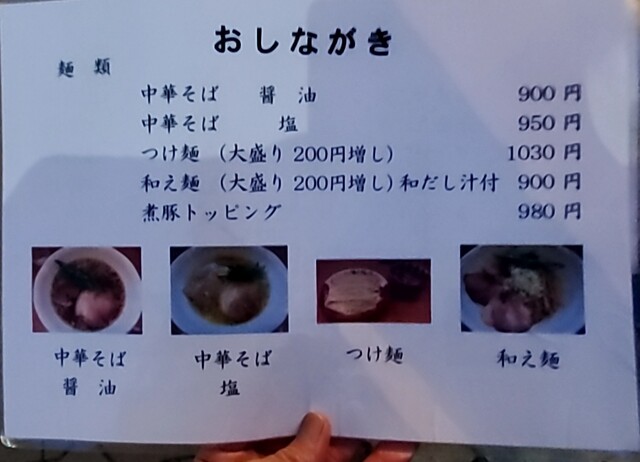 おしながき
麺 類
中華そば 醤 油 900 円
中華そば 塩 950 円
つけ麺 (大盛り 200円増し) 1030 円
和え麺 (大盛り 200円増し)和だし汁付 900 円
煮豚トッピング 980 円
中華そば 中華そば つけ麺 和え麺
醤 油 塩